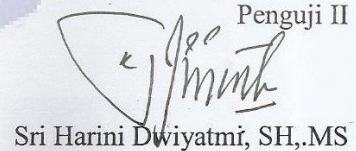 Penguji II
Sri Harini Dwiyatmi, SH,.MS